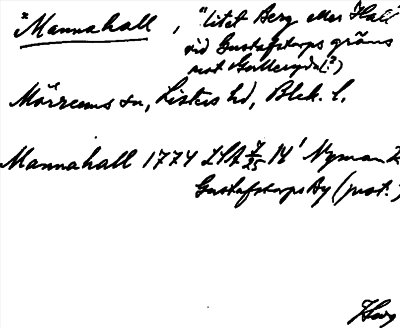 "Mannahall", "litet Berg eller Hall
vid Gustafstorps gräns
mot Gallergda(?)
Mörrums sn, Listers hd, Blek. l.
Mannahall 1774 LSA 7/25 14' Nyman
Gustafstorps By (prot.)